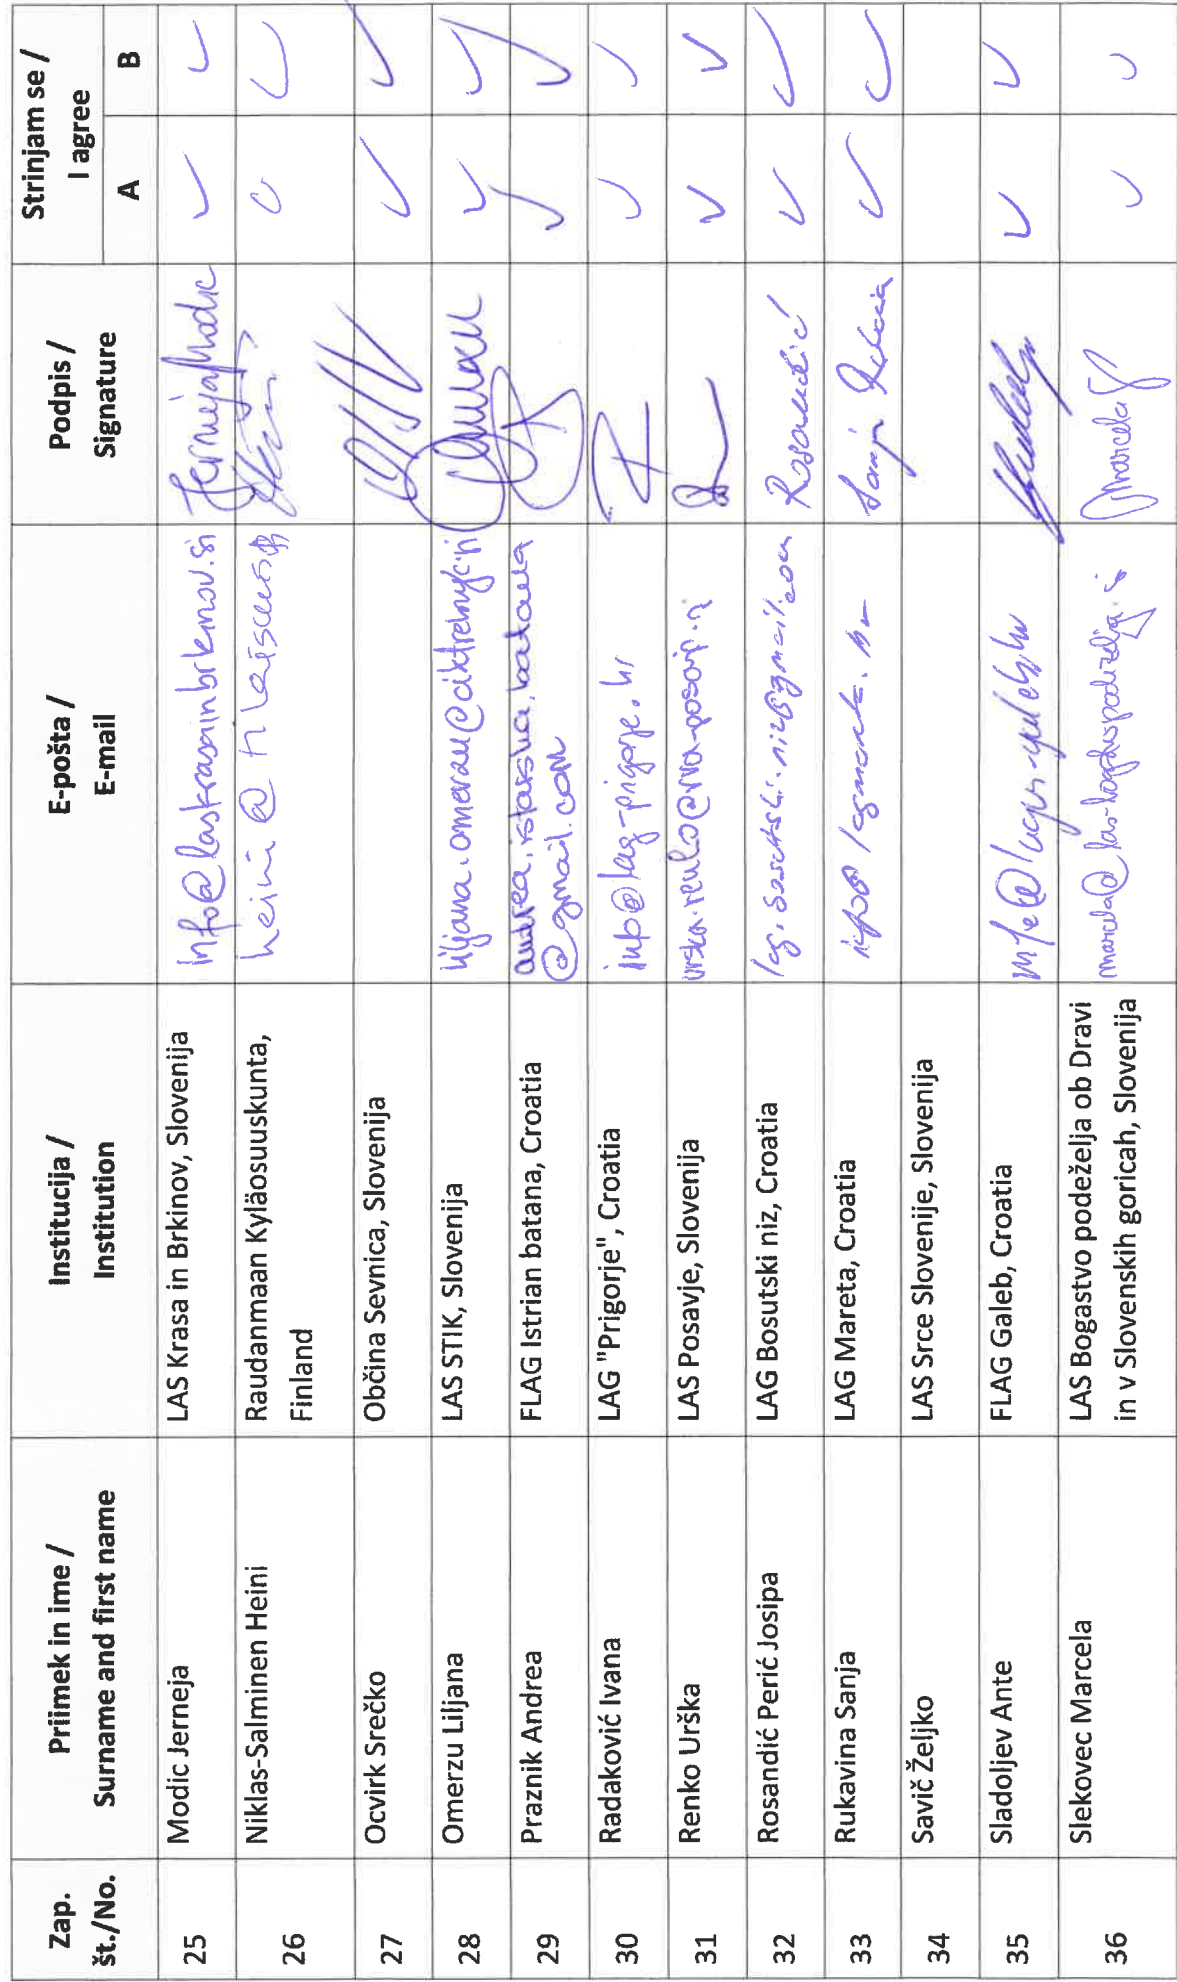 Zap. št./No. Priimek in ime / Surname and first name Institucija / Institution E-pošta / E-mail Podpis / Signature Strinjam se / I agree A B
25 Modic Jerneja LAS Krasa in Brkinov, Slovenija info@laskrasainbrkinov.si Jerneja Modic
26 Niklas-Salminen Heini Raudanmaan Kyläosuuskunta, Finland Heini
27 Ocvirk Srečko Občina Sevnica, Slovenija
28 Omerzu Liljana LAS STIK, Slovenija
29 Praznik Andrea FLAG Istrian batana, Croatia andrea.istarska.batana
@gmail.com
30 Radaković Ivana LAG "Prigorje", Croatia info@lag-prigorje.hr
31 Renko Urška LAS Posavje, Slovenija
32 Rosandić Perić Josipa LAG Bosutski niz, Croatia Rosandić
33 Rukavina Sanja LAG Mareta, Croatia Sanja
34 Savič Željko LAS Srce Slovenije, Slovenija
35 Sladoljev Ante FLAG Galeb, Croatia
36 Slekovec Marcela LAS Bogastvo podeželja ob Dravi
in v Slovenskih goricah, Slovenija Marcela